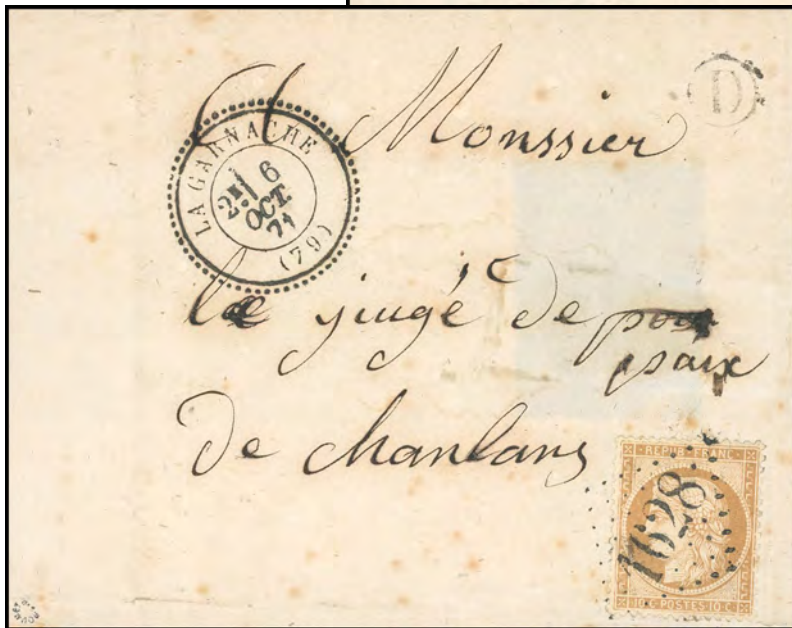 LA GARNACHE
2E
6
OCT
71
(79)
D
Monssier
le juge de
paix
de chanlans
REPUB. FRANC.
1628
10 C. POSTES 10 C.